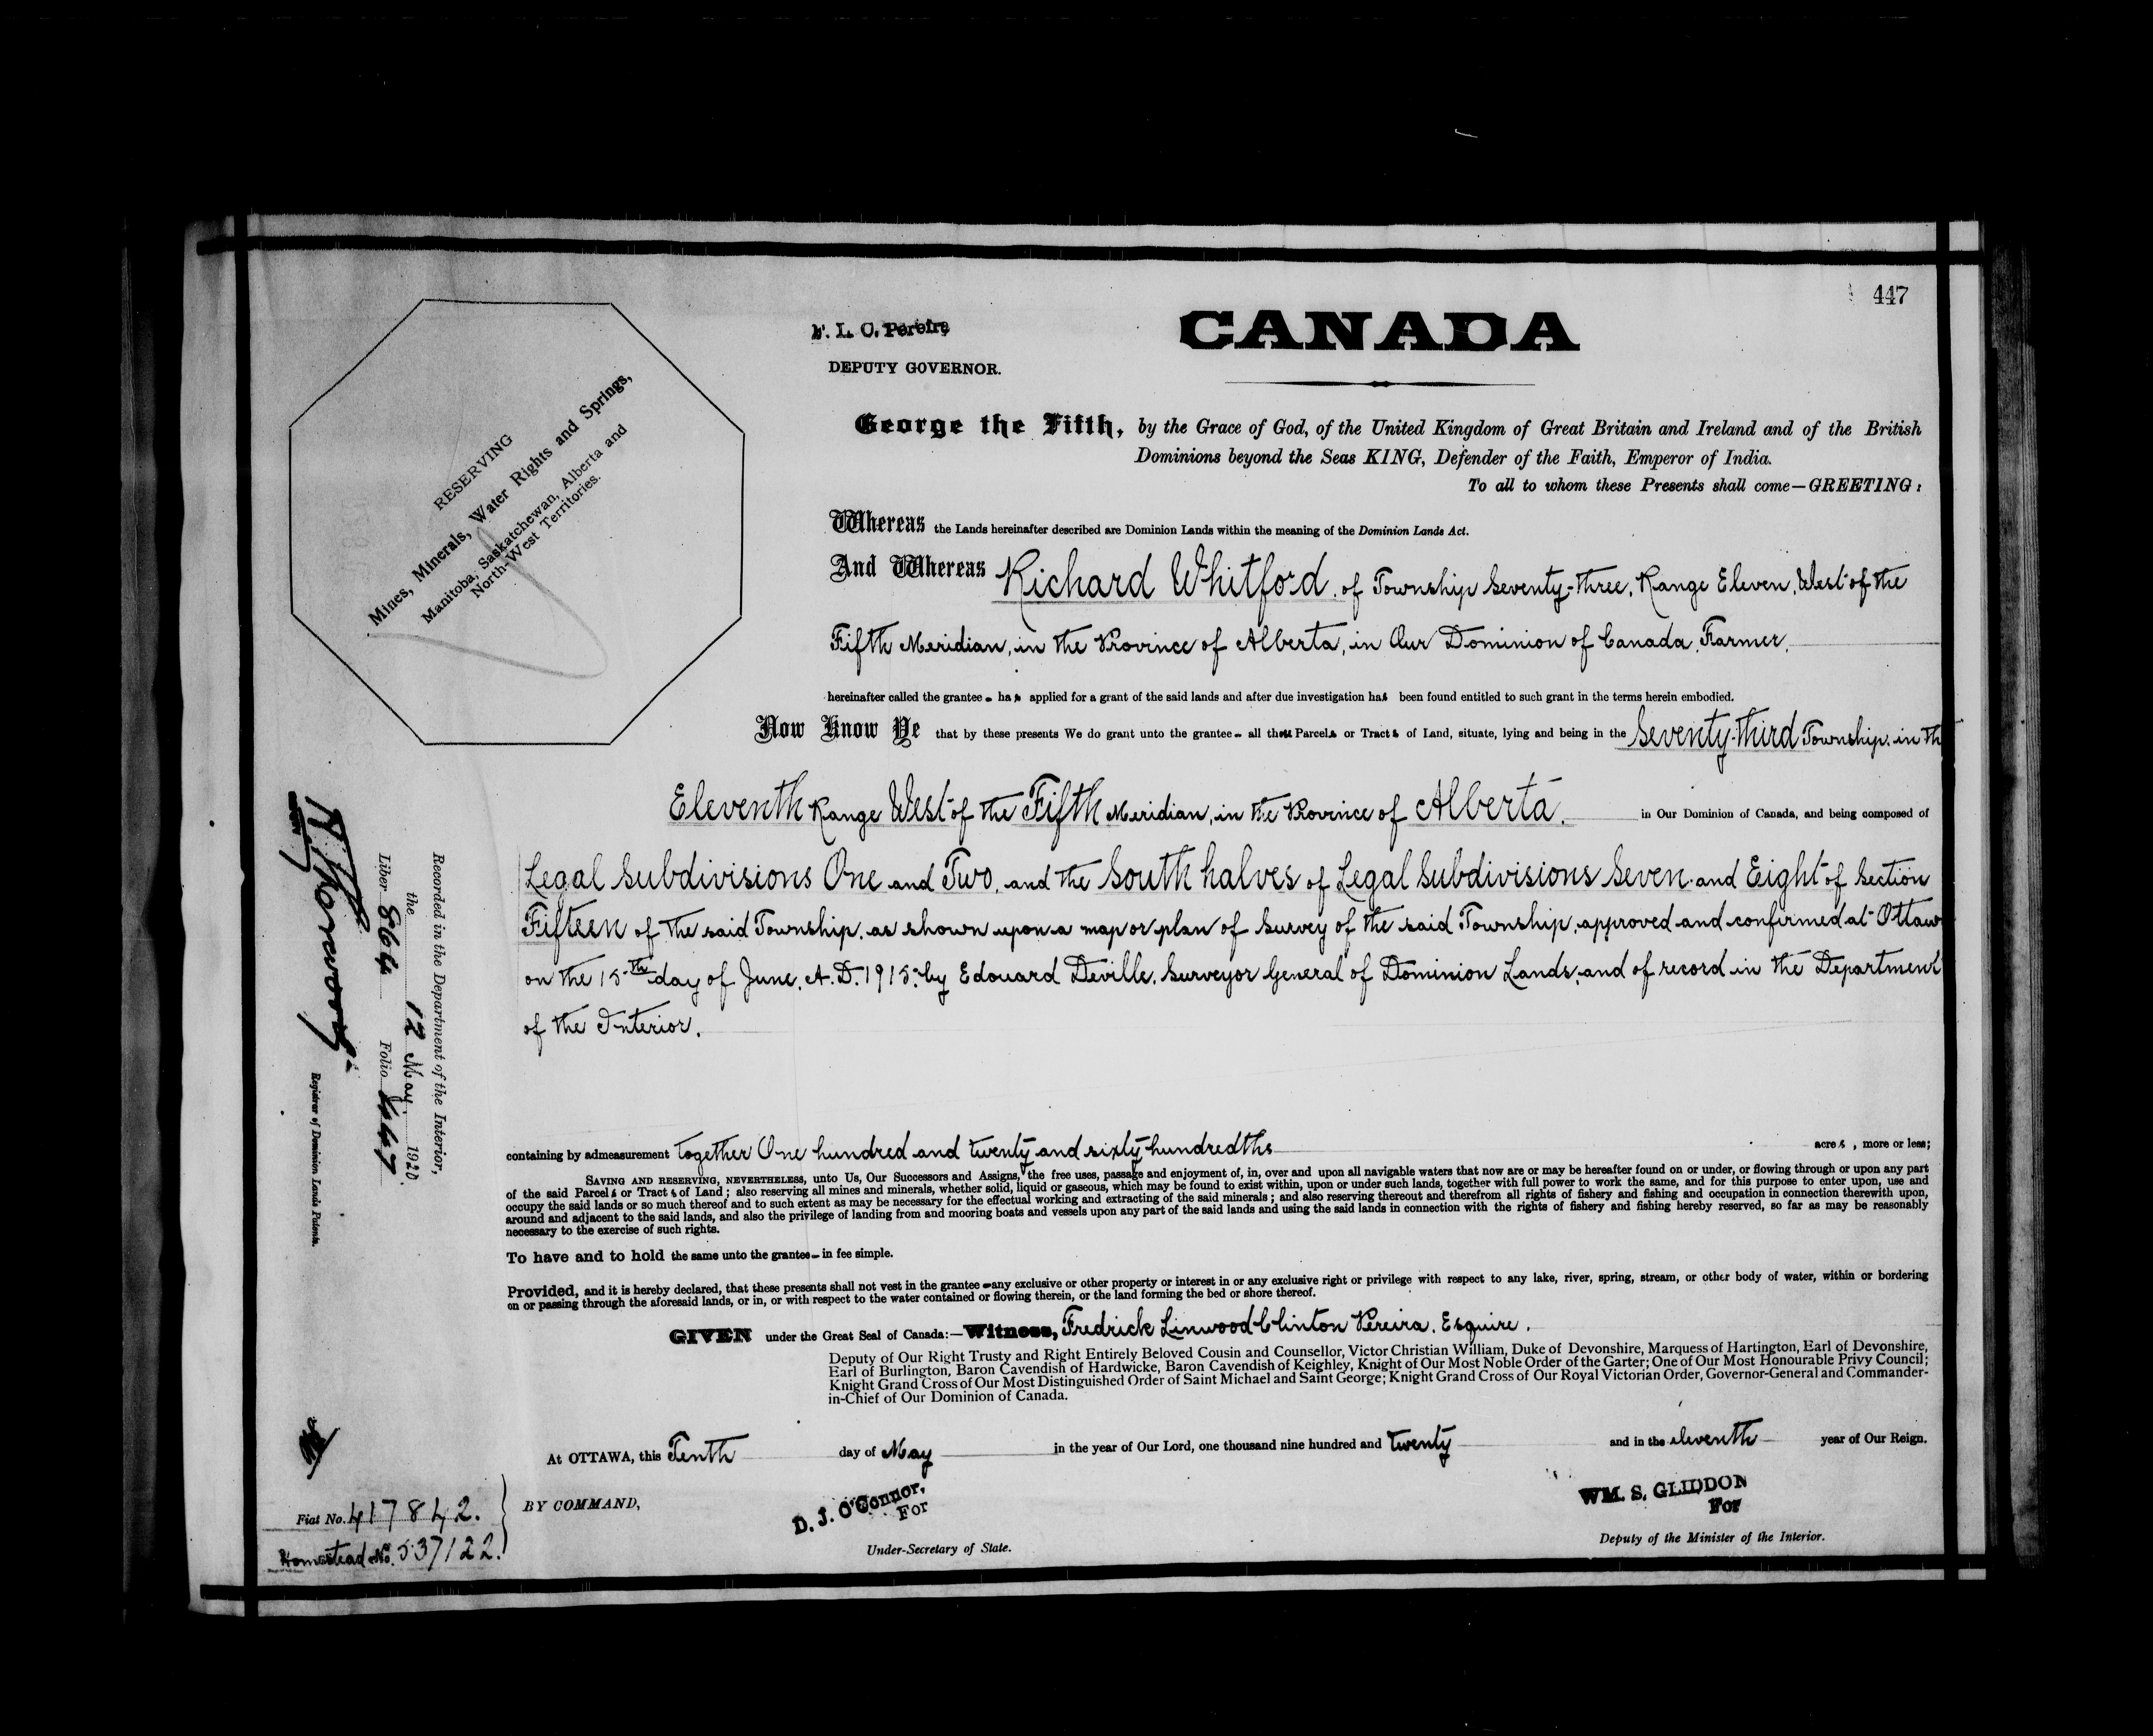 447
F. L. C. Pereira
DEPUTY GOVERNOR.
CANADA
RESERVING
Mines, Minerals, Water Rights and Springs,
Manitoba, Saskatchewan, Alberta and
North-West Territories.
George the Fifth, by the Grace of God, of the United Kingdom of Great Britain and Ireland and of the British
Dominions beyond the Seas KING, Defender of the Faith, Emperor of India.
To all to whom these Presents shall come—GREETING:
Whereas the Lands hereinafter described are Dominion Lands within the meaning of the Dominion Lands Act.
And Whereas Richard Whitford, of Township Seventy-three, Range Eleven, West of the
Fifth Meridian, in the Province of Alberta, in Our Dominion of Canada, Farmer,
hereinafter called the grantee - has applied for a grant of the said lands and after due investigation has been found entitled to such grant in the terms herein embodied.
Now Know Ye that by these presents We do grant unto the grantee - all those Parcels or Tracts of Land, situate, lying and being in the Seventy-third Township, in th
Eleventh Range West of the Fifth Meridian, in the Province of Alberta, in Our Dominion of Canada, and being composed of
Legal Subdivisions One and Two, and the South halves of Legal Subdivisions Seven and Eight of Section
Fifteen of the said Township, as shown upon a map or plan of Survey of the said Township, approved and confirmed at Ottaw
on the 15th day of June, A.D. 1915, by Edouard Deville, Surveyor General of Dominion Lands, and of record in the Department
of the Interior.
containing by admeasurement together One hundred and twenty and sixty-hundredths acres, more or less;
SAVING AND RESERVING, NEVERTHELESS, unto Us, Our Successors and Assigns, the free uses, passage and enjoyment of, in, over and upon all navigable waters that now are or may be hereafter found on or under, or flowing through or upon any part
of the said Parcels or Tracts of Land; also reserving all mines and minerals, whether solid, liquid or gaseous, which may be found to exist within, upon or under such lands, together with full power to work the same, and for this purpose to enter upon, use and
occupy the said lands or so much thereof and to such extent as may be necessary for the effectual working and extracting of the said minerals; and also reserving thereout and therefrom all rights of fishery and fishing and occupation in connection therewith upon,
around and adjacent to the said lands, and also the privilege of landing from and mooring boats and vessels upon any part of the said lands and using the said lands in connection with the rights of fishery and fishing hereby reserved, so far as may be reasonably
necessary to the exercise of such rights.
To have and to hold the same unto the grantee - in fee simple.
Provided, and it is hereby declared, that these presents shall not vest in the grantee - any exclusive or other property or interest in or any exclusive right or privilege with respect to any lake, river, spring, stream, or other body of water, within or bordering
on or passing through the aforesaid lands, or in, or with respect to the water contained or flowing therein, or the land forming the bed or shore thereof.
GIVEN under the Great Seal of Canada:—Witness, Fredrick Linwood Clinton Pereira, Esquire,
Deputy of Our Right Trusty and Right Entirely Beloved Cousin and Counsellor, Victor Christian William, Duke of Devonshire, Marquess of Hartington, Earl of Devonshire,
Earl of Burlington, Baron Cavendish of Hardwicke, Baron Cavendish of Keighley, Knight of Our Most Noble Order of the Garter; One of Our Most Honourable Privy Council;
Knight Grand Cross of Our Most Distinguished Order of Saint Michael and Saint George; Knight Grand Cross of Our Royal Victorian Order, Governor-General and Commander-
in-Chief of Our Dominion of Canada.
At OTTAWA, this Tenth day of May in the year of Our Lord, one thousand nine hundred and twenty and in the eleventh year of Our Reign.
BY COMMAND,
D. J. O'Connor,
For
Under-Secretary of State.
WM. S. GLIDDON
For
Deputy of the Minister of the Interior.
Recorded in the Department of the Interior,
the 12 May 1920.
Liber 864 Folio 447
Registrar of Dominion Lands Patents.
Fiat No. 417842.
Homestead No. 537122.